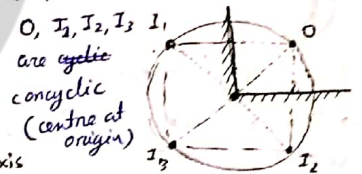 O, I₁, I₂, I₃
are cyclic
concyclic
(centre at
origin)
xis
I₁
O
I₃
I₂